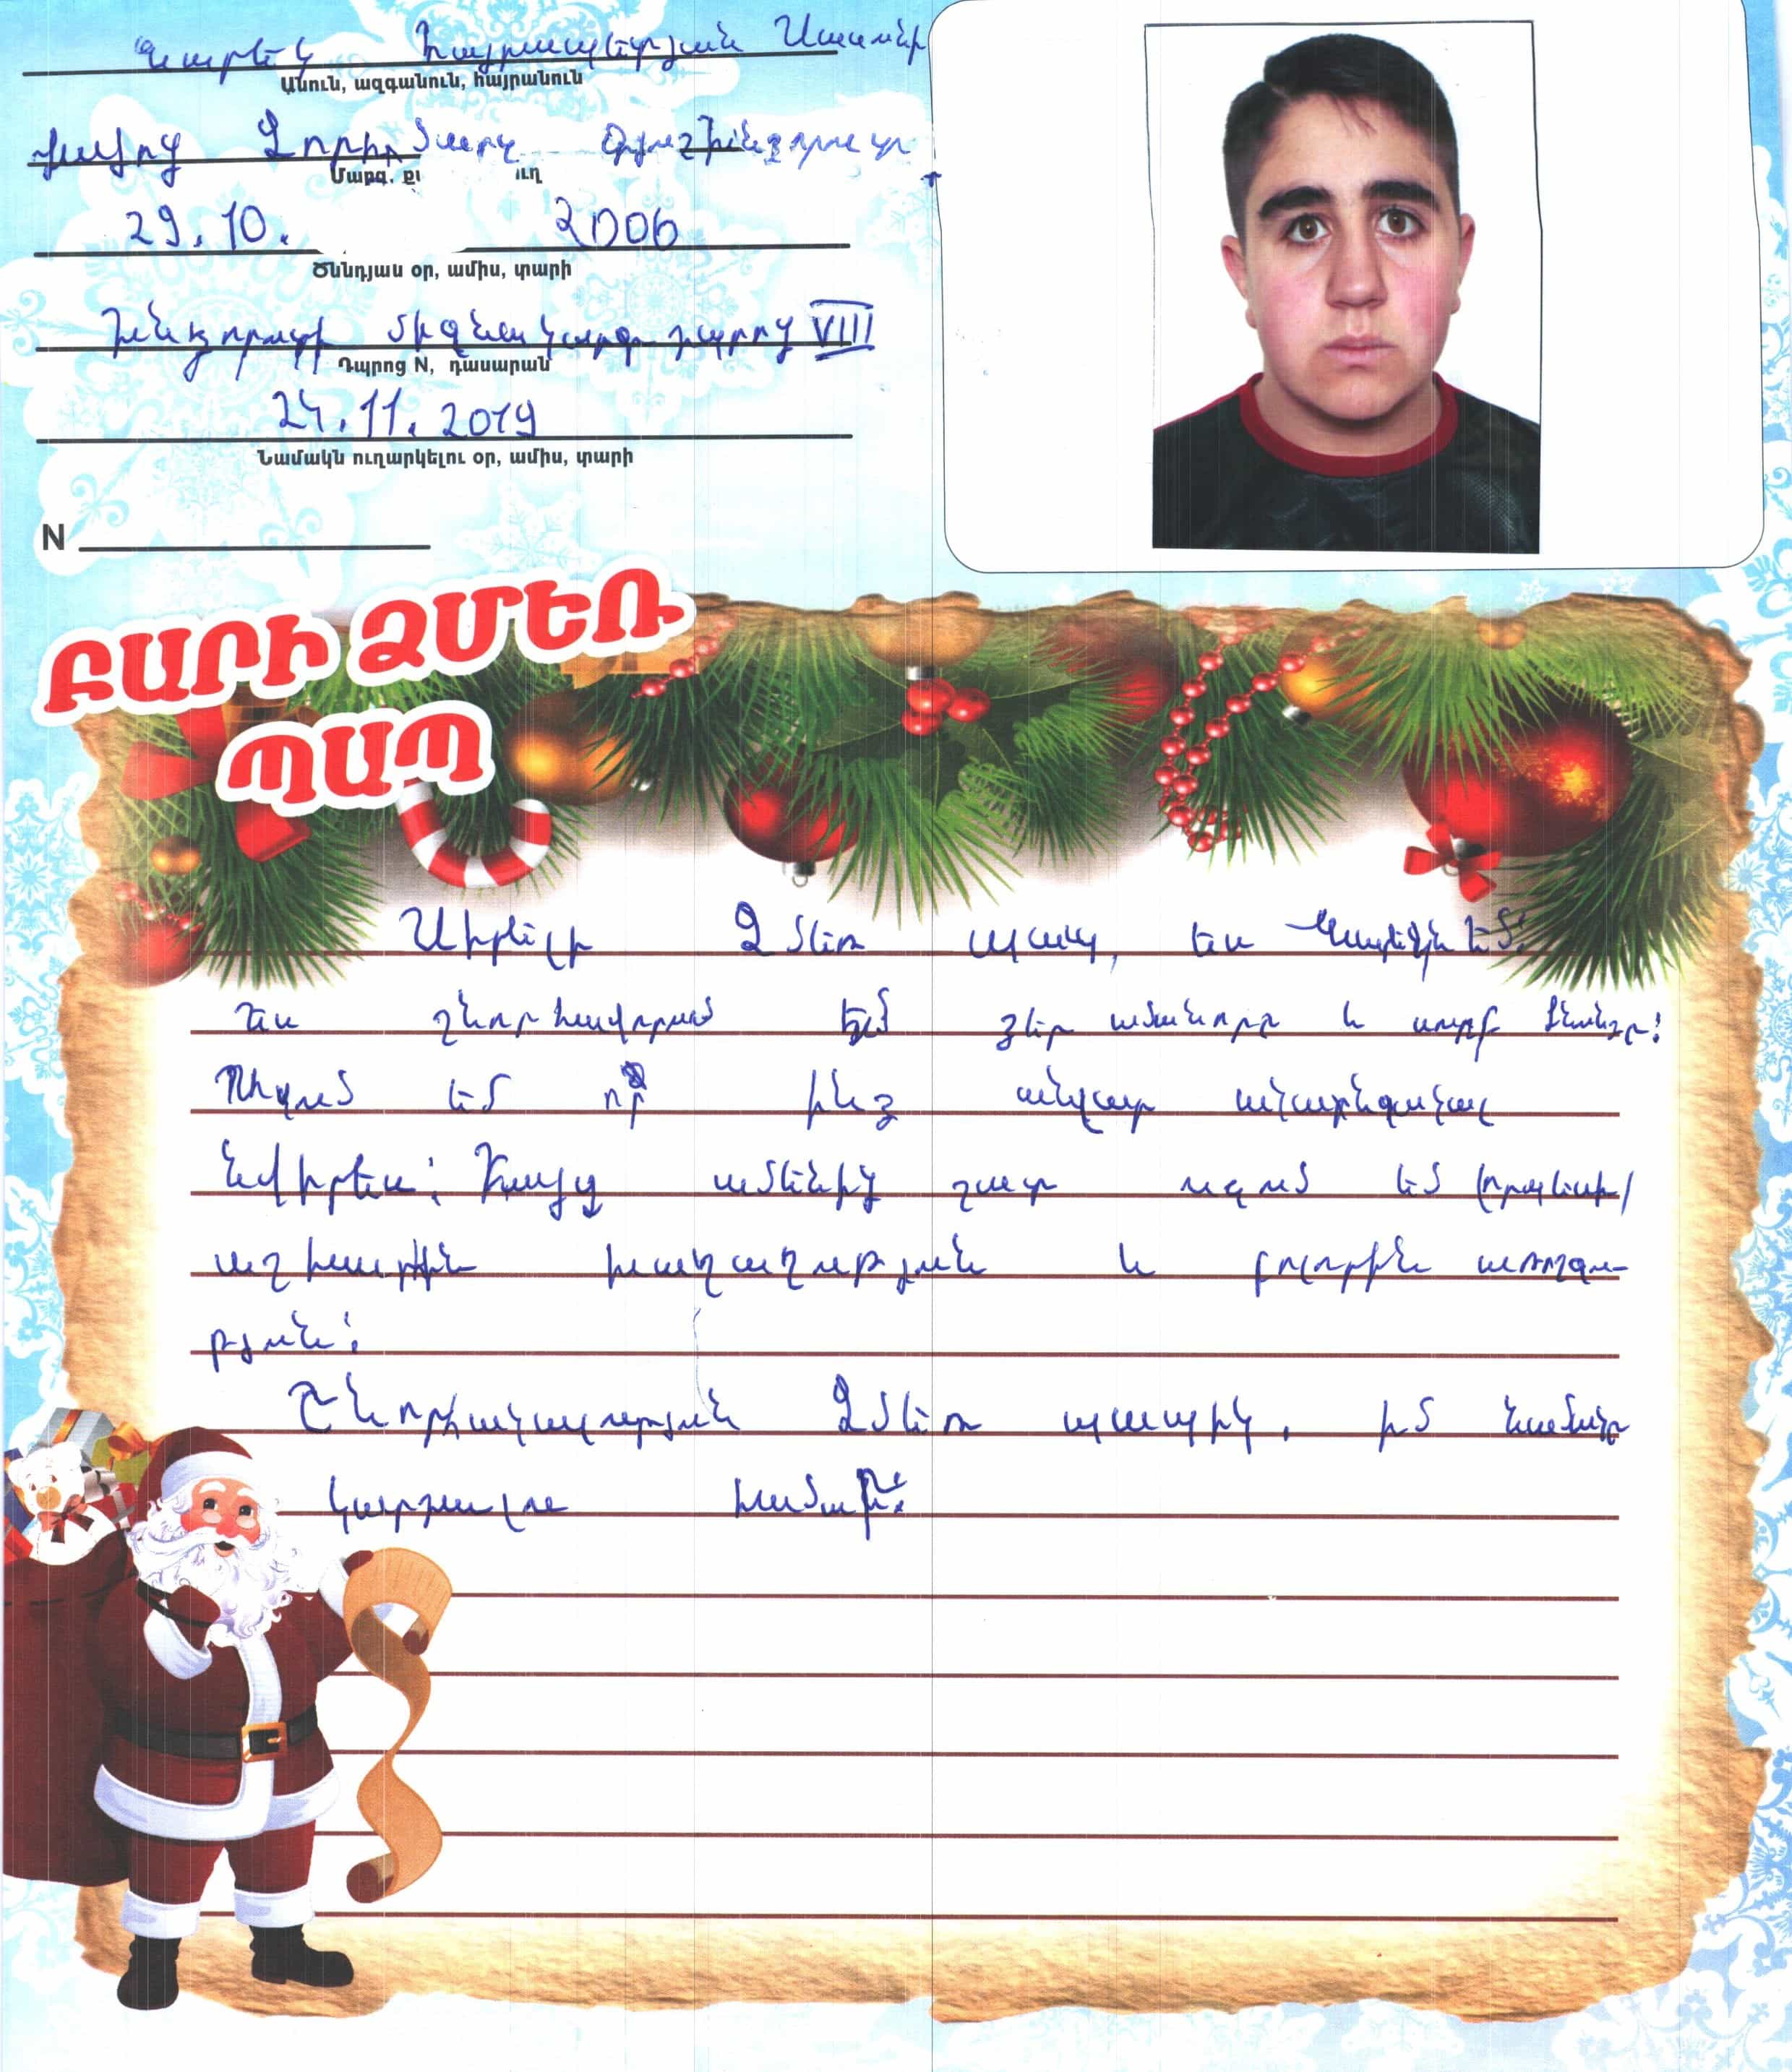 Կարեն Հայրապետյան Սասունի
Անուն, ազգանուն, հայրանուն
Վայոց Ձորի մարզ Գյուշ Խնձորուտ
Մարզ, ք ուղ
29.10. 2006
Ծննդյաս օր, ամիս, տարի
Խնձորուտի միջնակարգ դպրոց VIII
Դպրոց N, դասարան
24.11.2019
Նամակն ուղարկելու օր, ամիս, տարի
N
ԲԱՐԻ ՁՄԵՌ
ՊԱՊ
Սիրելի Ձմեռ պապ, ես եմ:
Ես շնորհավորում եմ ձեր ամանորը և սուրբ ծնունդը:
Ուզում եմ որ ինձ անվար
նվիրես: Բայց ամենից շատ ուզում եմ
աշխարհին խաղաղություն և բոլորին առողջու-
թյուն:
Շնորհակալություն Ձմեռ պապիկ, իմ նամակը
կարդալու համար: